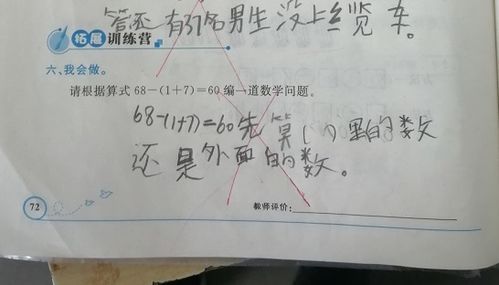 答还有31名男生没上缆车。
拓展训练营
六、我会做。
请根据算式 68-(1+7)=60 编一道数学问题。
68-(1+7)=60先算( )里的数
还是外面的数。
72
教师评价: